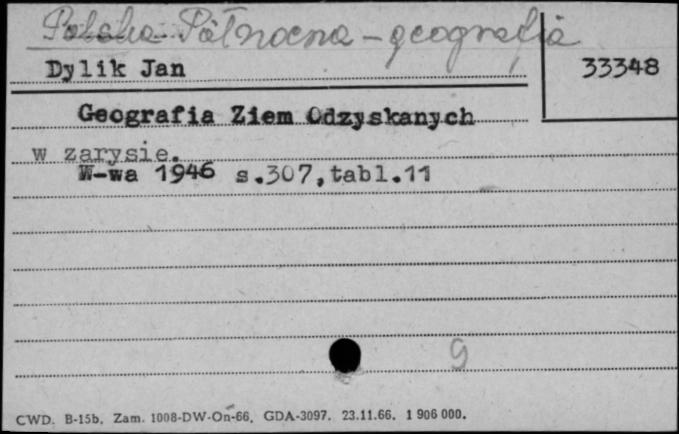 Polska Północna - geografia
Dylik Jan 33348
Geografia Ziem Odzyskanych
w zarysie.
W-wa 1946 s.307,tabl.11
9
CWD. B-15b. Zam. 1008-DW-On-66. GDA-3097. 23.11.66. 1 906 000.